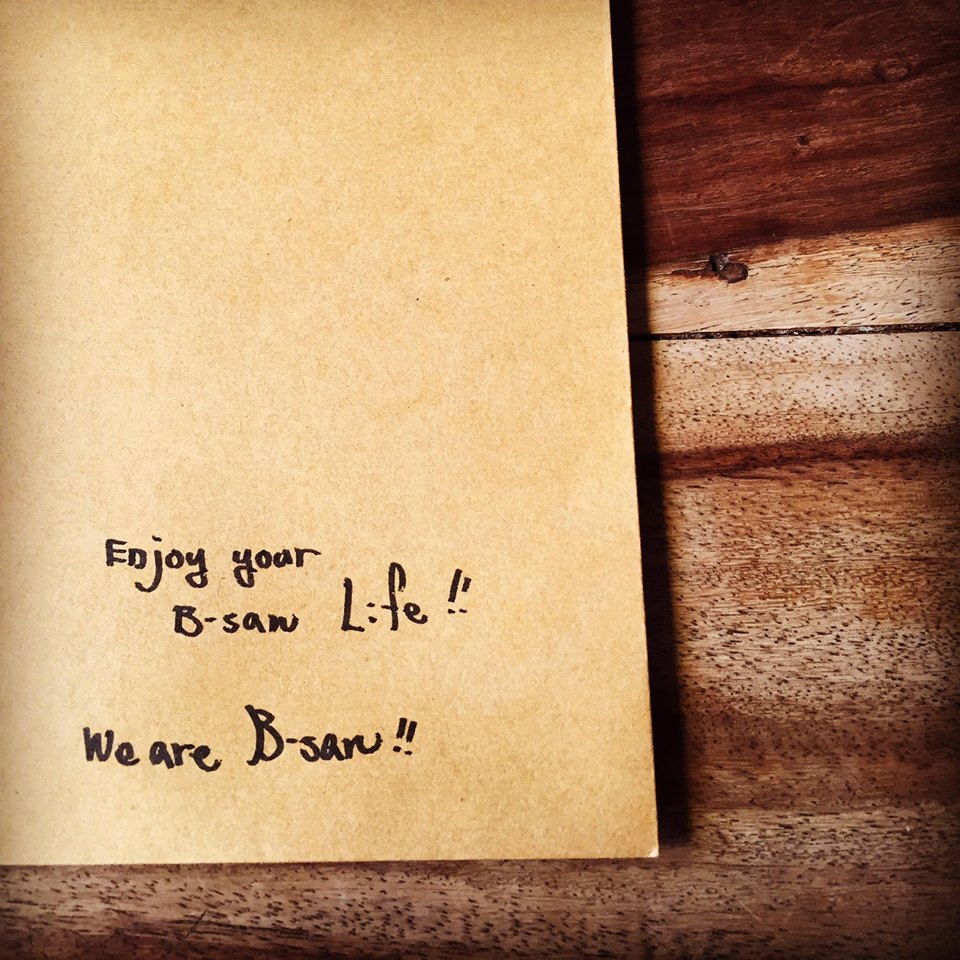 Enjoy your
B-san Life!!
We are B-san!!